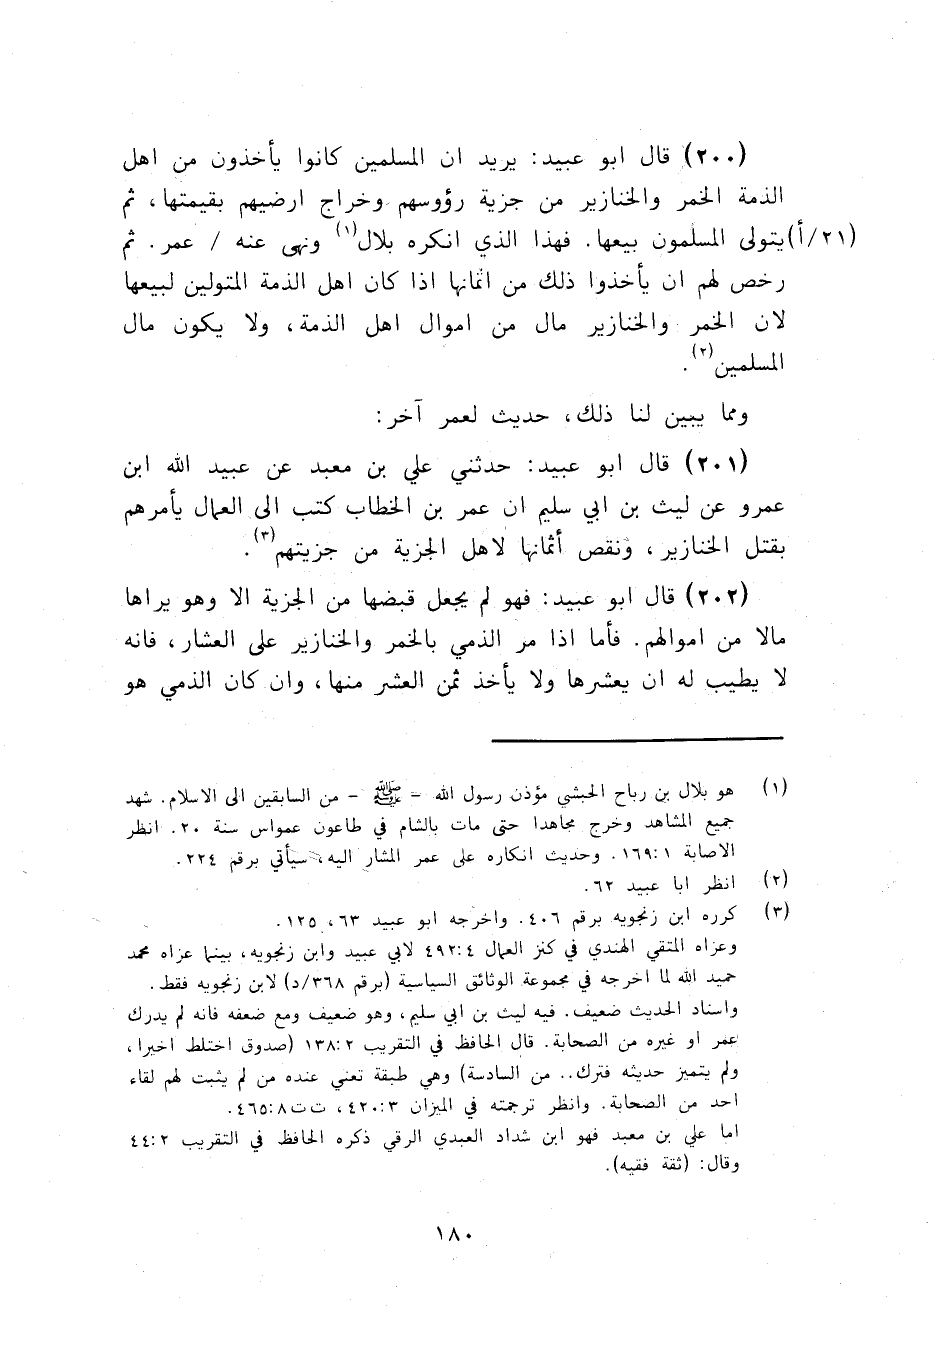 (٢٠٠) قال ابو عبيد: يريد ان المسلمين كانوا يأخذون من اهل
الذمة الخمر والخنازير من جزية رؤوسهم وخراج ارضيهم بقيمتها، ثم
(٢١/أ) يتولى المسلمون بيعها. فهذا الذي انكره بلال(١) ونهى عنه / عمر. ثم
رخص لهم ان يأخذوا ذلك من اثمانها اذا كان اهل الذمة المتولين لبيعها
لان الخمر والخنازير مال من اموال اهل الذمة، ولا يكون مال
المسلمين(٢).
ومما يبين لنا ذلك، حديث لعمر آخر:
(٢٠١) قال ابو عبيد: حدثني علي بن معبد عن عبيد الله ابن
عمرو عن ليث بن ابي سليم ان عمر بن الخطاب كتب الى العمال يأمرهم
بقتل الخنازير، ونقص أثمانها لاهل الجزية من جزيتهم(٣).
(٢٠٢) قال ابو عبيد: فهو لم يجعل قبضها من الجزية الا وهو يراها
مالا من اموالهم. فأما اذا مر الذمي بالخمر والخنازير على العشار، فانه
لا يطيب له ان يعشرها ولا يأخذ ثمن العشر منها، وان كان الذمي هو
(١) هو بلال بن رباح الحبشي مؤذن رسول الله - ﷺ - من السابقين الى الاسلام. شهد
جميع المشاهد وخرج مجاهدا حتى مات بالشام في طاعون عمواس سنة ٢٠. انظر
الاصابة ١:١٦٩. وحديث انكاره على عمر المشار اليه، سيأتي برقم ٢٢٤.
(٢) انظر ابا عبيد ٦٢.
(٣) كرره ابن زنجويه برقم ٤٠٦. واخرجه ابو عبيد ٦٣، ١٢٥.
وعزاه المتقي الهندي في كنز العمال ٤:٤٩٢ لابي عبيد وابن زنجويه، بينما عزاه محمد
حميد الله لما اخرجه في مجموعة الوثائق السياسية (برقم ٣٦٨/د) لابن زنجويه فقط.
واسناد الحديث ضعيف. فيه ليث بن ابي سليم، وهو ضعيف ومع ضعفه فانه لم يدرك
عمر او غيره من الصحابة. قال الحافظ في التقريب ٢:١٣٨ (صدوق اختلط اخيرا،
ولم يتميز حديثه فترك.. من السادسة) وهي طبقة تعني عنده من لم يثبت لهم لقاء
احد من الصحابة. وانظر ترجمته في الميزان ٣:٤٢٠، ت ت ٨:٤٦٥.
اما علي بن معبد فهو ابن شداد العبدي الرقي ذكره الحافظ في التقريب ٢:٤٤
وقال: (ثقة فقيه).
١٨٠